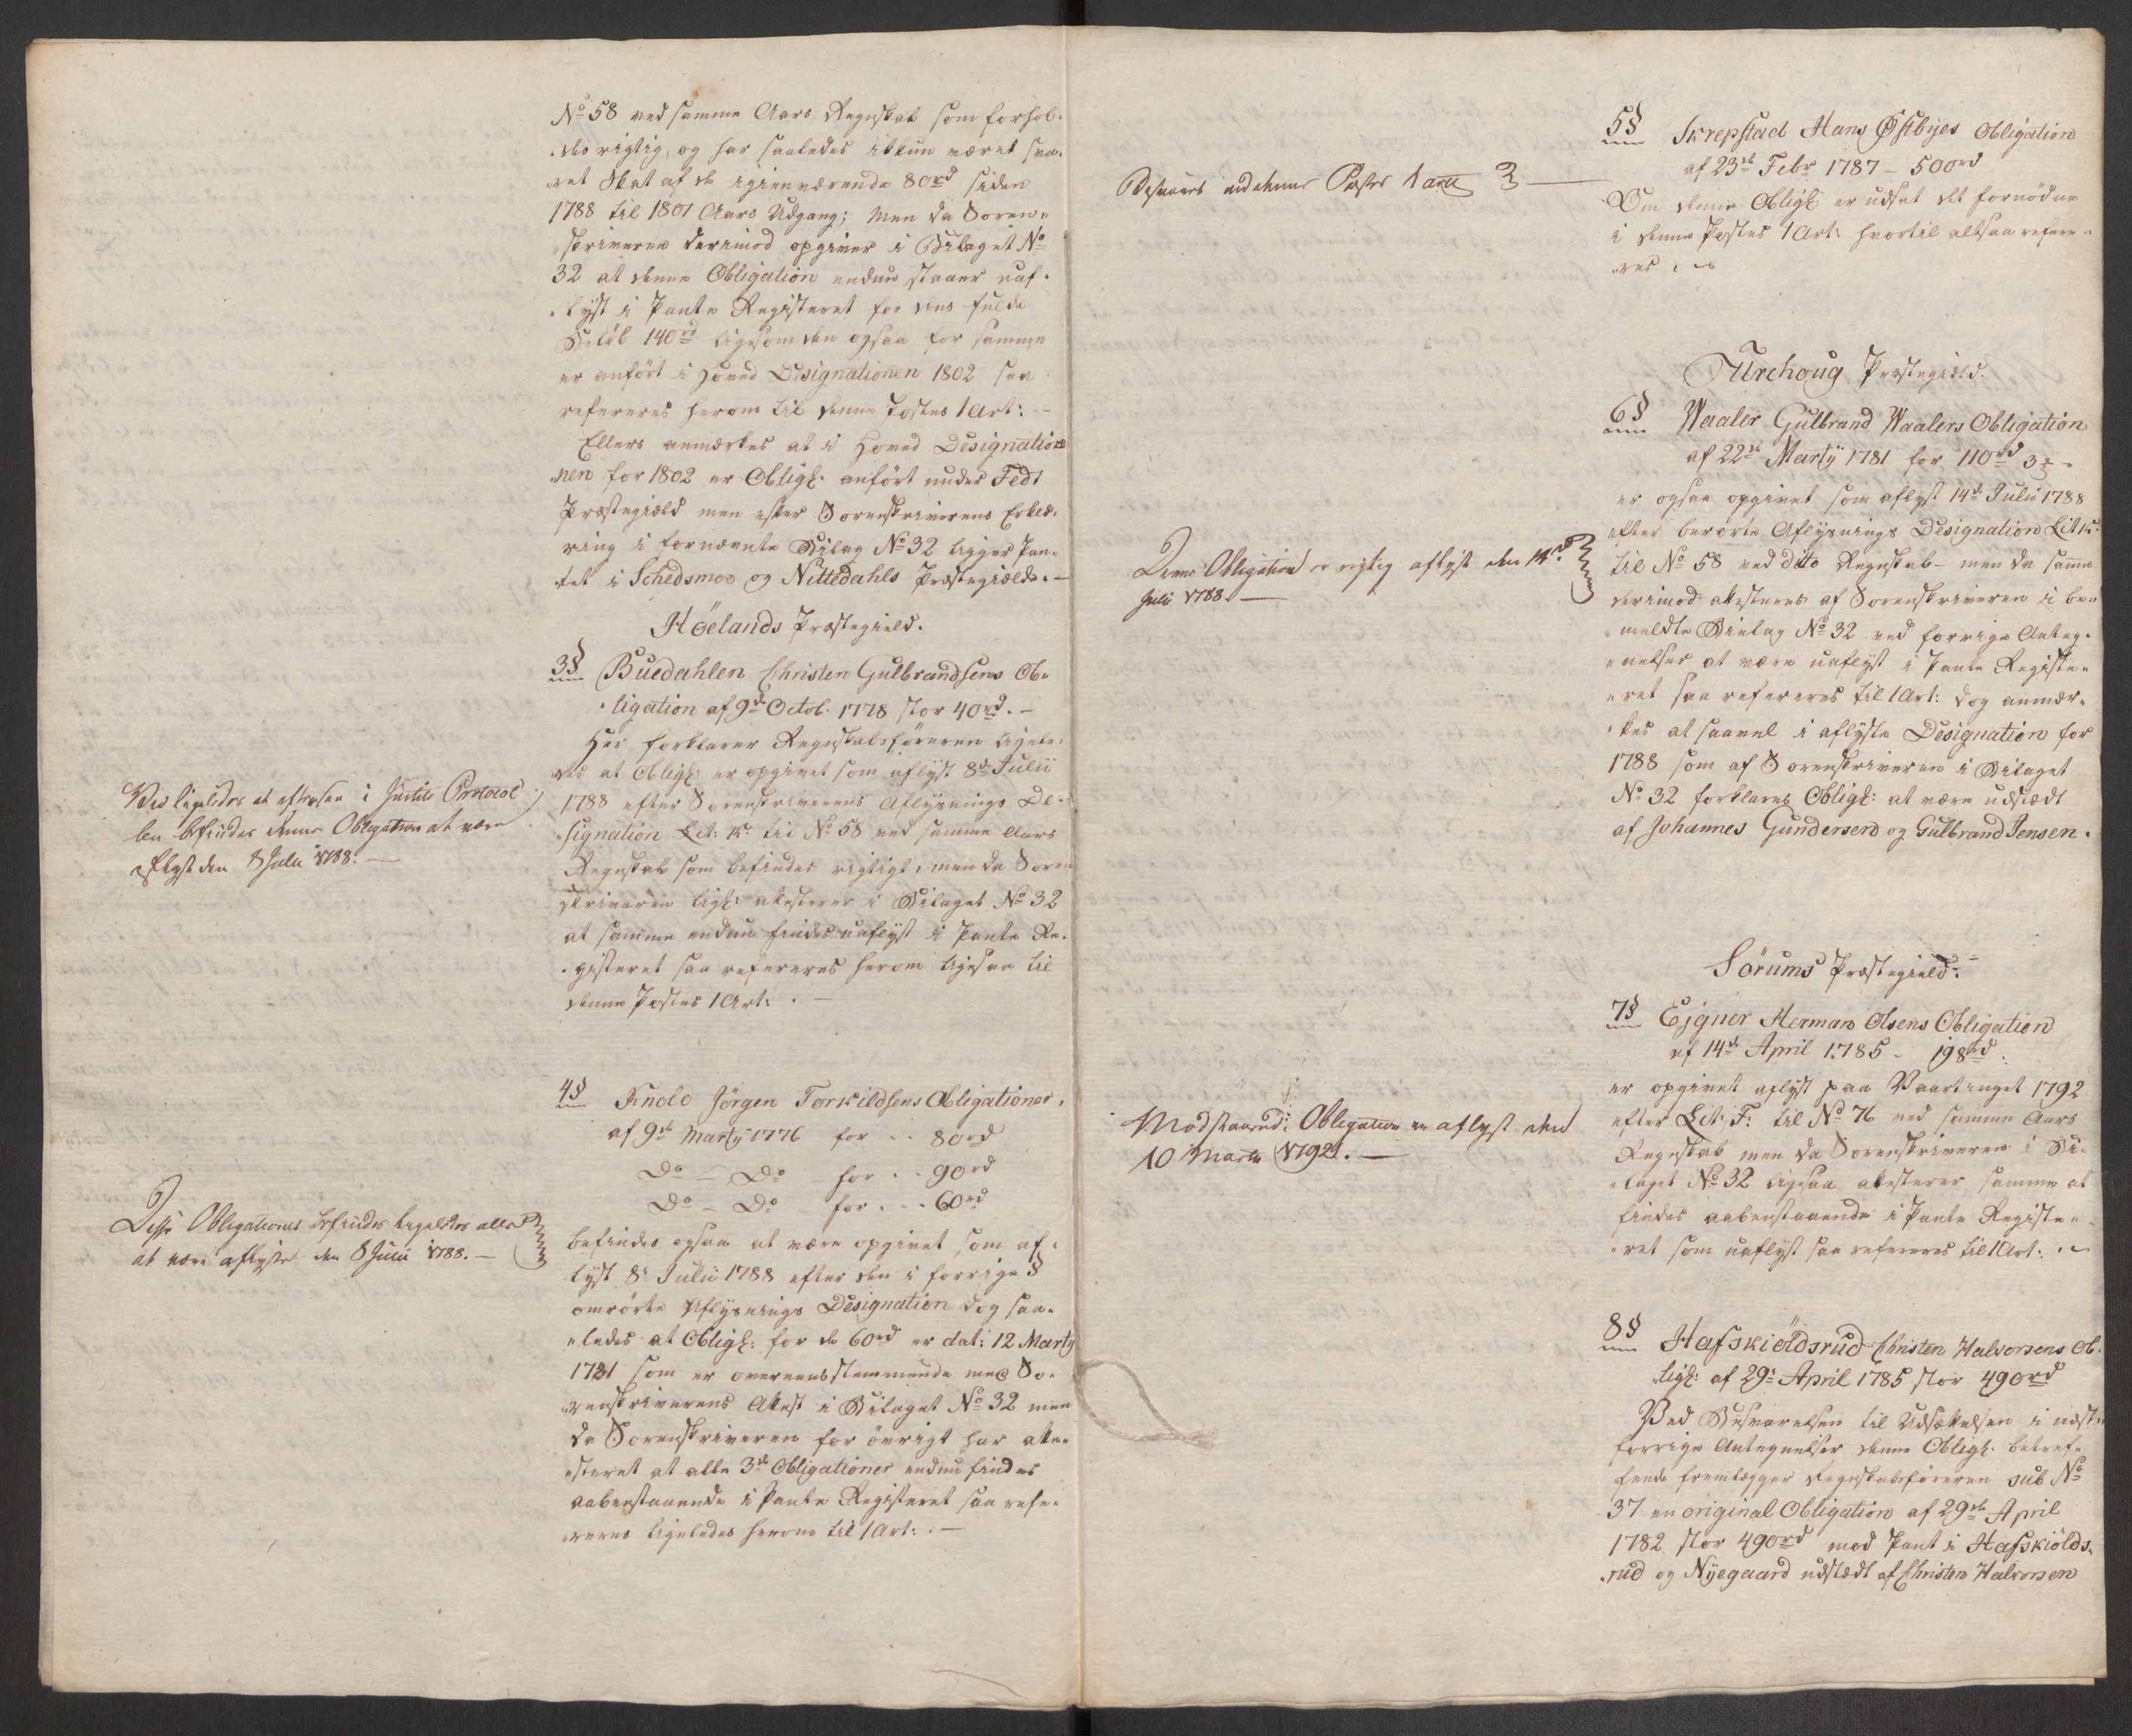 No 58 ved samme Aars Regnskab som forhol-
-des rigtig, og har saaledes ikkun været sva-
-ret Skat af de igienværende 80rd siden
1788 til 1801 Aars Udgang; men da Soren-
-skriveren derimod opgiver i Bilaget No
32 at denne Obligation endnu staaer uaf-
-lyst i Pante Registeret for dens fulde
Beløb 140rd ligesom den ogsaa for samme
er anført i Hoved Designationen 1802 saa
refereres herom til denne Postes 1 Art: -
Ellers anmærkes at i Hoved Designatio-
-nen for 1802 er Obligl: anført under Fedt
Præstegiæld men efter Sorenskriverens Erklæ-
ring i fornævnte Bilag No 32 ligger Pan-
-tet i Schedsmoe og Nittedahls Præstegiæld. -
Höelands Præstegield.
3§ Buedahlen Christen Gulbrandsens Ob-
-ligation af 9de Octob. 1778 stor 40rd. -
Her forklarer Regnskabsføreren ligele-
-des at Obligl: er opgivet som aflyst 8de Julii
1788 efter Sorenskriverens Aflysnings De-
-signation Lit: K. til No 58 ved samme Aars
Regnskab som befindes rigtigt, men da Soren
skriveren ligl: attesterer i Bilaget No 32
at samme endnu findes uaflyst i Pante Re-
-gisteret saa refereres herom ligesaa til
denne Postes 1 Art: . -
Ved ligeledes at eftersee i Justits Protocol
len befindes denne Obligation at være
aflyst den 8 Julii 1788. -
4§ Knold Jörgen Torkildsens Obligationer,
af 9de Marty 1776 for .. 80rd
Do - Do for .. 90rd
Do - Do for ... 60rd
befindes ogsaa at være opgivet som af-
lyst 8de Julii 1788 efter den i forrige §
omrørte Aflysnings Designation dog saa-
-ledes at Obligl: for de 60rd er dat: 12 Marty
1781 som er overeensstemmende med So-
-renskriverens Attest i Bilaget No 32 men
da Sorenskriveren for øvrigt har atte-
-steret at alle 3de Obligationer endnu findes
aabenstaaende i Pante Registeret saa refe-
-reres ligeledes herom til 1 Art: . -
Disse Obligationer befindes ligeledes alle
at være aflyste den 8 Julii 1788. -
5§ Skrepstad Hans Østbyes Obligation
af 23de Febr 1787 - 500rd
Om denne Obligl: er udsat det fornødne
i denne Postes 1 Art: hvortil altsaa refere-
-res.
Besvares ved denne Postes 1 art
Turehoug Præstegiæld.
6§ Waaler Gulbrand Waalers Obligation
af 22de Marty 1781 for 110rd
er ogsaa opgivet som aflyst 14de Julii 1788
efter berørte Aflysnings Designation Lit K:
til No 58 ved dito Regnskab - men da samme
derimod attesteres af Sorenskriveren i be-
-meldte Bielag No 32 ved forrige Anteg-
-nelser at være uaflyst i Pante Registe-
-ret saa refereres til 1 Art: dog anmær-
-kes at saavel i aflyste Designation for
1788 som af Sorenskriveren i Bilaget
No 32 forklares Obligl: at være udstædt
af Johannes Gundersen og Gulbrand Jensen.
Denne Obligation er rigtig aflyst den 14de
Julii 1788. -
Sörums Præstegield.
7§ Ejgner Herman Olsens Obligation
af 14de April 1785 - 198rd.
er opgivet aflyst paa Vaartinget 1792
efter Lit: F: til No 76 ved samme Aars
Regnskab men da Sorenskriveren i Bi-
-laget No 32 ligesaa attesterer samme at
findes aabenstaaende i Pante Registe-
-ret som uaflyst saa refereres til 1 Art:
Modstaaende Obligation er aflyst den
10 Martii 1792. -
8§ Hafskiöldsrud Christen Halvorsens Ob-
-ligl: af 29de April 1785 stor 490rd
Ved Besvarelsen til Udsættelsen i næst-
forrige Antegnelser denne Obligl: betref-
fende fremlægger Regnskabsføreren sub No
37 en original Obligation af 29de April
1782 stor 490rd med Pant i Hafskiölds-
-rud og Nyegaard udstædt af Christen Halvorsen